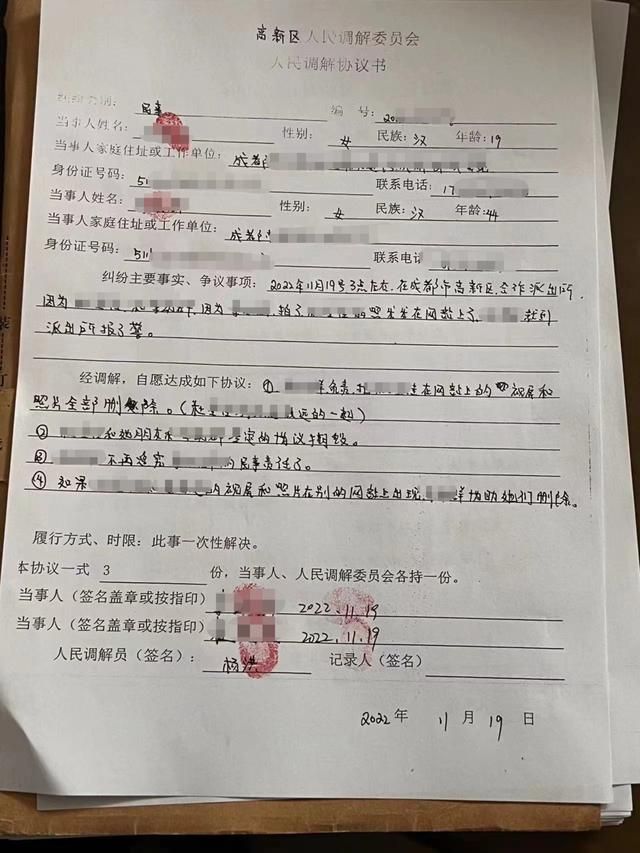 高新区人民调解委员会
人民调解协议书
纠纷类别： 民事 编 号：20
当事人姓名： 性别： 女 民族：汉 年龄：19
当事人家庭住址或工作单位：成都
身份证号码：51 联系电话：17
当事人姓名： 性别： 女 民族：汉 年龄：44
当事人家庭住址或工作单位：成都
身份证号码：511 联系电话
纠纷主要事实、争议事项：2022年11月19号3点左右，在成都市高新区合作派出所，
因为 因为 拍了 照发在网上了， 就到
派出所报了警。
经调解，自愿达成如下协议：① 负责把 在网上的 视屏和
照片全部删除。（
② 和她朋友 签定的协议
③ 不再追究 的民事责任了。
④ 如果 视屏和照片在别的网上出现， 协助她们删除。
履行方式、时限：此事一次性解决。
本协议一式 3 份，当事人、人民调解委员会各持一份。
当事人（签名盖章或按指印） 2022.11.19
当事人（签名盖章或按指印） 2022.11.19
人民调解员（签名）： 杨洪 记录人（签名）
2022年 11月 19日